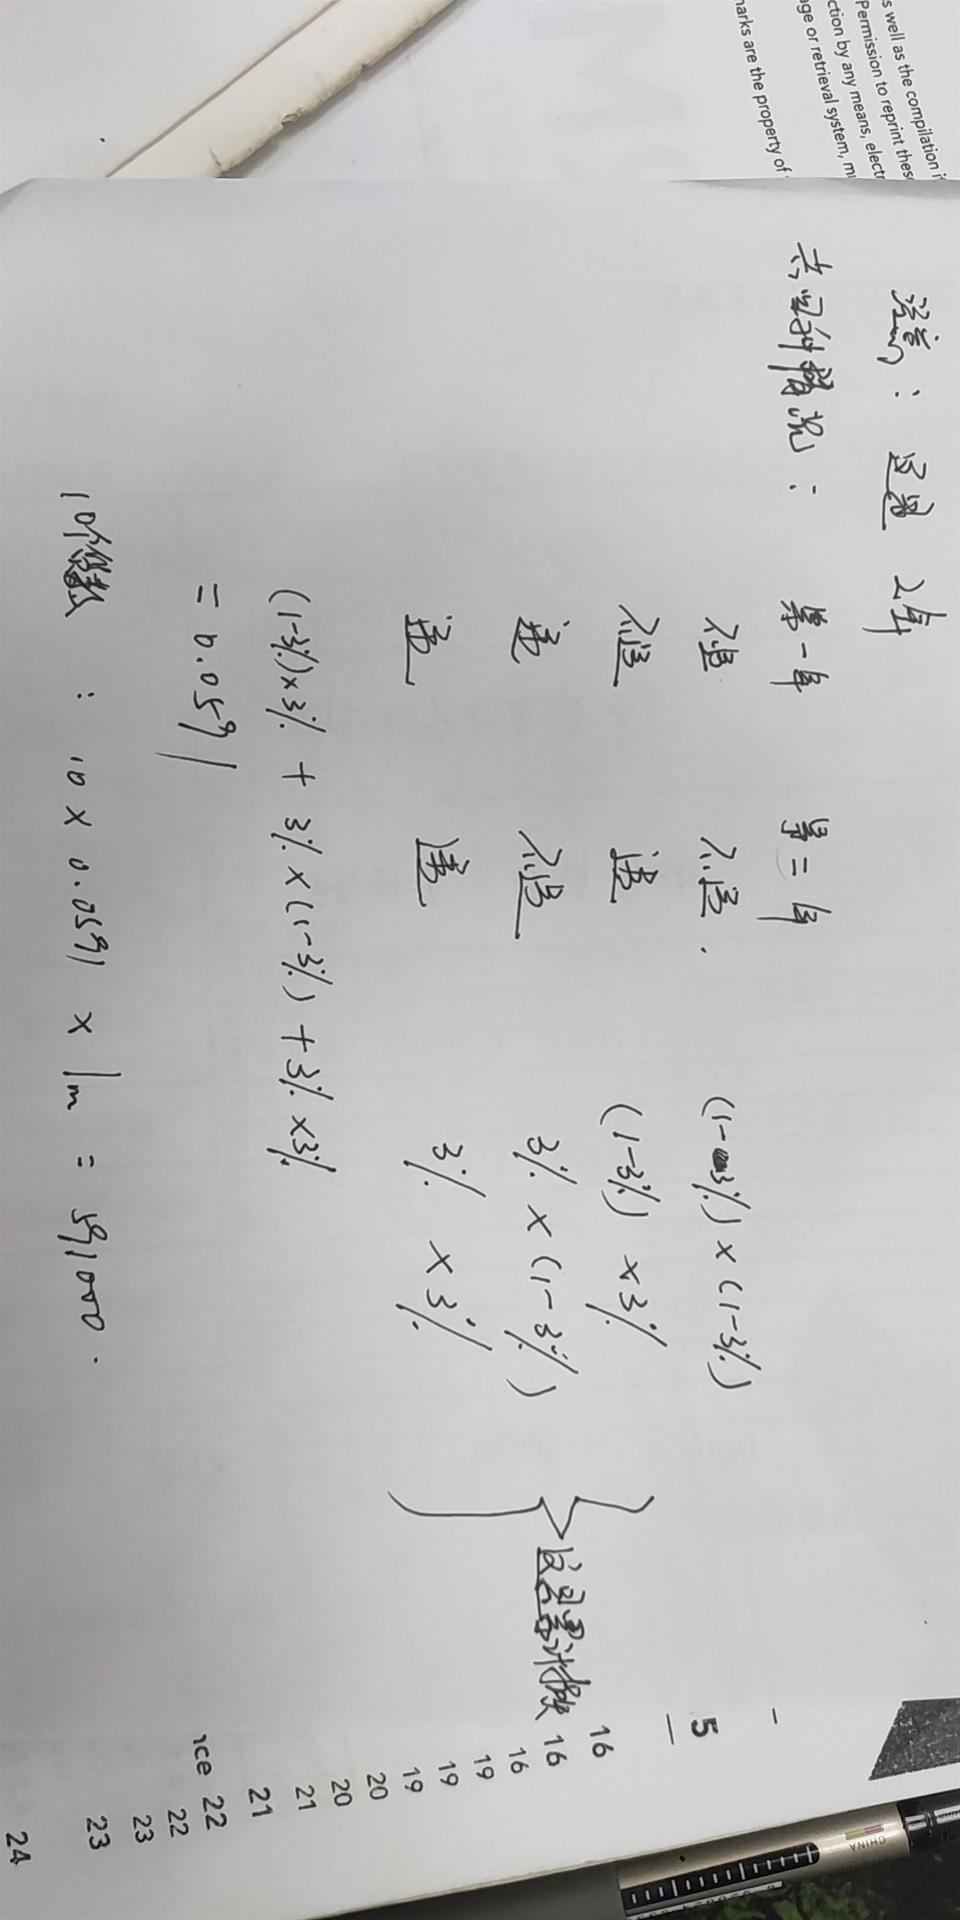 s well as the compilation i
Permission to reprint thes
ction by any means, electr
ge or retrieval system, m
marks are the property of
注意: 2年
共四种情况: 第一年 第二年
不违 不违. (1-3%)×(1-3%)
不违 违 (1-3%)×3%
违 不违 3%×(1-3%)
违 违 3%×3%
(1-3%)×3% + 3%×(1-3%) + 3%×3%
= 0.0591
10个债券: 10×0.0591×1m = 591000.
5
16
16
16
19
19
19
20
20
21
21
nce 22
22
23
23
24
CHINA